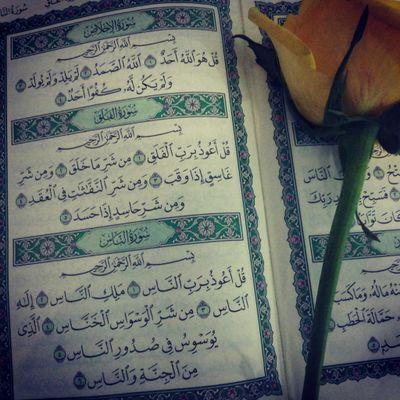 سُورَةُ الإِخْلَاصِ
بِسْمِ اللَّهِ الرَّحْمَٰنِ الرَّحِيمِ
قُلْ هُوَ اللَّهُ أَحَدٌ ١ اللَّهُ الصَّمَدُ ٢ لَمْ يَلِدْ وَلَمْ يُولَدْ ٣
وَلَمْ يَكُن لَّهُ كُفُوًا أَحَدٌ ٤
سُورَةُ الفَلَقِ
بِسْمِ اللَّهِ الرَّحْمَٰنِ الرَّحِيمِ
قُلْ أَعُوذُ بِرَبِّ الْفَلَقِ ١ مِن شَرِّ مَا خَلَقَ ٢ وَمِن شَرِّ
غَاسِقٍ إِذَا وَقَبَ ٣ وَمِن شَرِّ النَّفَّٰثَٰتِ فِي الْعُقَدِ ٤
وَمِن شَرِّ حَاسِدٍ إِذَا حَسَدَ ٥
سُورَةُ النَّاسِ
بِسْمِ اللَّهِ الرَّحْمَٰنِ الرَّحِيمِ
قُلْ أَعُوذُ بِرَبِّ النَّاسِ ١ مَلِكِ النَّاسِ ٢ إِلَٰهِ
النَّاسِ ٣ مِن شَرِّ الْوَسْوَاسِ الْخَنَّاسِ ٤ الَّذِي
يُوَسْوِسُ فِي صُدُورِ النَّاسِ ٥
مِنَ الْجِنَّةِ وَالنَّاسِ ٦
النَّاسَ
فَسَبِّحْ
رَبِّكَ
مَالُهُ وَمَا كَسَبَ
حَمَّالَةَ الْحَطَبِ